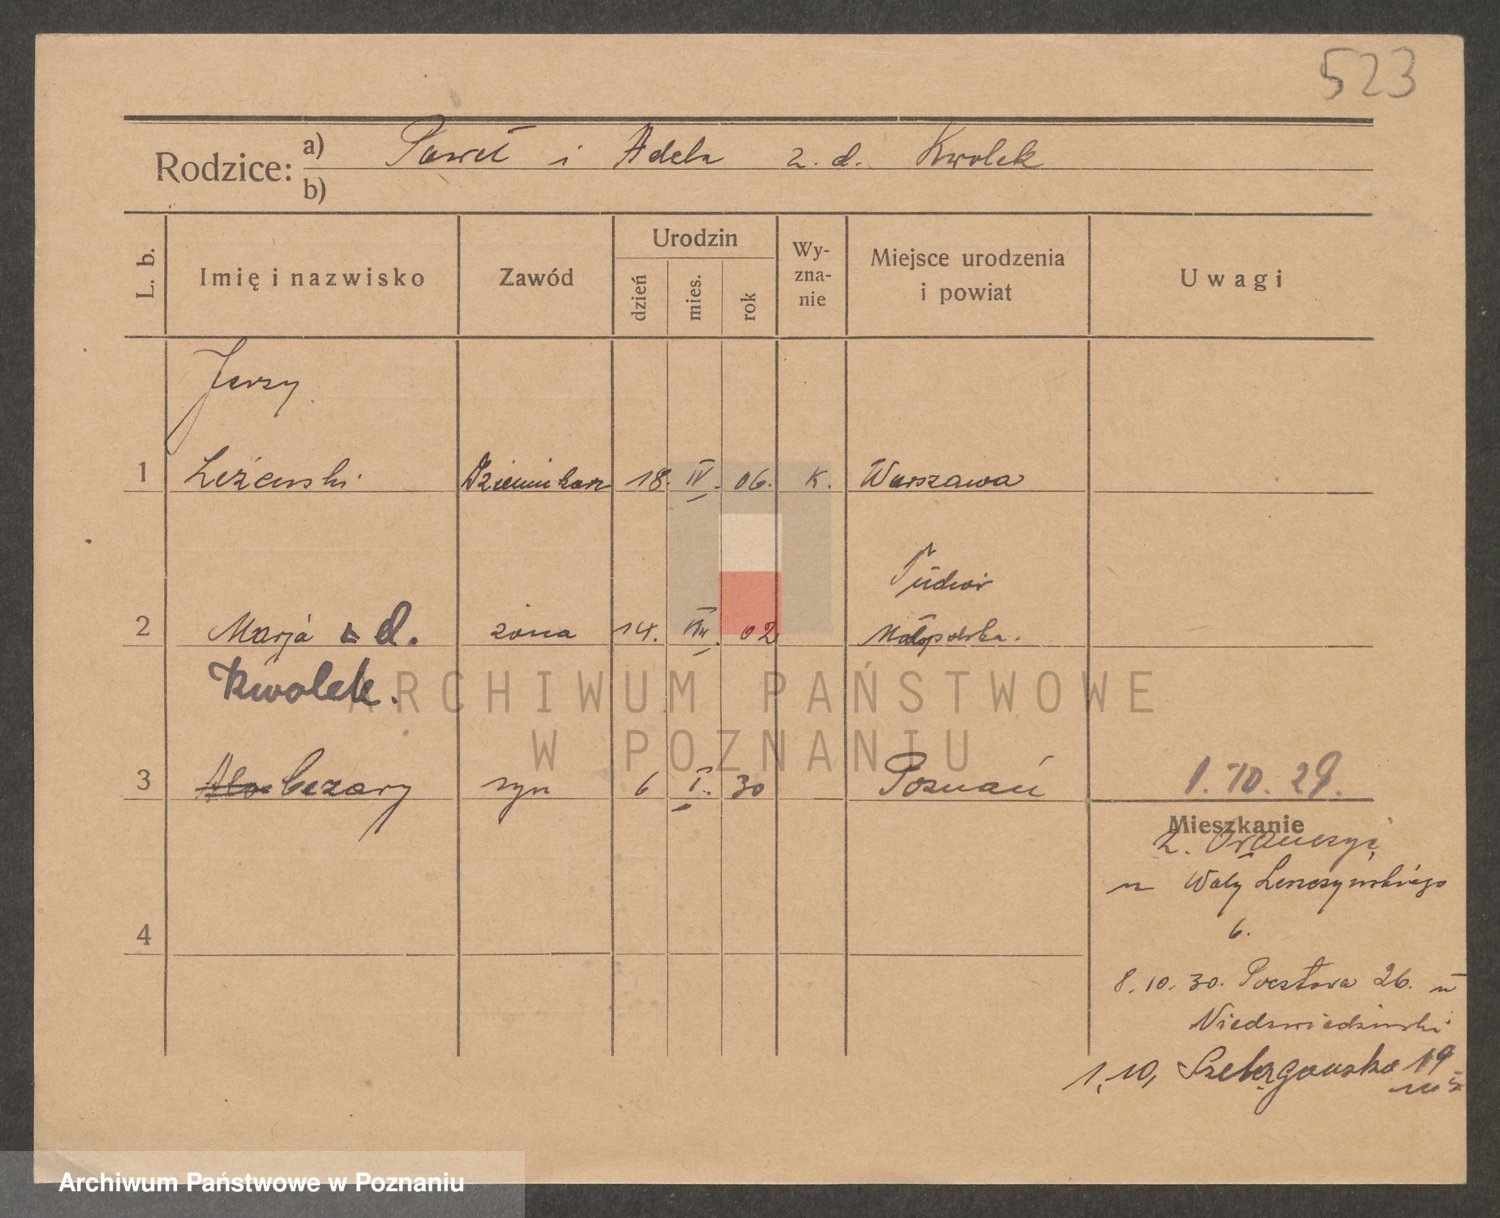 523
Rodzice: a) Paweł i Adela z. d. Kwolek
b)
L. b. Imię i nazwisko Zawód Urodzin dzień mies. rok Wyznanie Miejsce urodzenia i powiat Uwagi
Jerzy
1 Leżeński Dziennikarz 18. IV. 06. K. Warszawa
Tudiów
2 Marja z d. żona 14. VIII. 02 Małopolska.
Kwolek.
3 Cezary syn 6 I. 30 Poznań 1. 10. 29.
Mieszkanie
z. Francyi
n Wały Leszczyńskiego
6.
4
8. 10. 30. Pocztowa 26. n
Niedzwiedzinski
1. 10, Szelągowska 19
ARCHIWUM PAŃSTWOWE
W POZNANIU
Archiwum Państwowe w Poznaniu